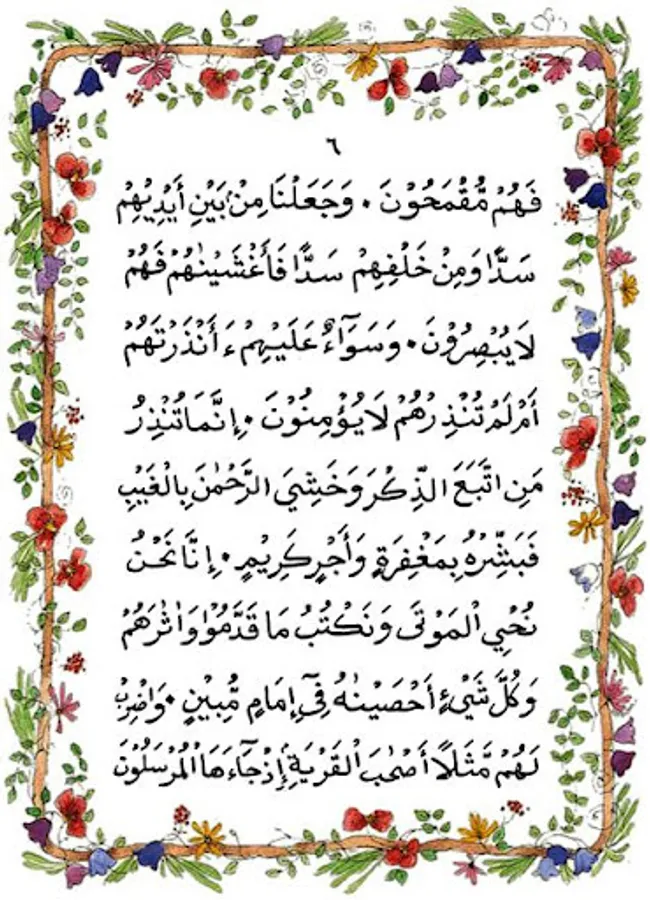 ٦
فَهُمْ مُّقْمَحُوْنَ ۰ وَجَعَلْنَا مِنْۢ بَيْنِ أَيْدِيْهِمْ
سَدًّا وَمِنْ خَلْفِهِمْ سَدًّا فَأَغْشَيْنٰهُمْ فَهُمْ
لَا يُبْصِرُوْنَ ۰ وَسَوَآءٌ عَلَيْهِمْ ءَأَنْذَرْتَهُمْ
أَمْ لَمْ تُنْذِرْهُمْ لَا يُؤْمِنُوْنَ ۰ إِنَّمَا تُنْذِرُ
مَنِ اتَّبَعَ الذِّكْرَ وَخَشِيَ الرَّحْمٰنَ بِالْغَيْبِ
فَبَشِّرْهُ بِمَغْفِرَةٍ وَأَجْرٍ كَرِيْمٍ ۰ إِنَّا نَحْنُ
نُحْيِ الْمَوْتَى وَنَكْتُبُ مَا قَدَّمُوْا وَاٰثَارَهُمْ
وَكُلَّ شَيْءٍ أَحْصَيْنٰهُ فِيْ إِمَامٍ مُّبِيْنٍ ۰ وَاضْرِبْ
لَهُمْ مَّثَلًا أَصْحٰبَ الْقَرْيَةِ إِذْ جَآءَهَا الْمُرْسَلُوْنَ